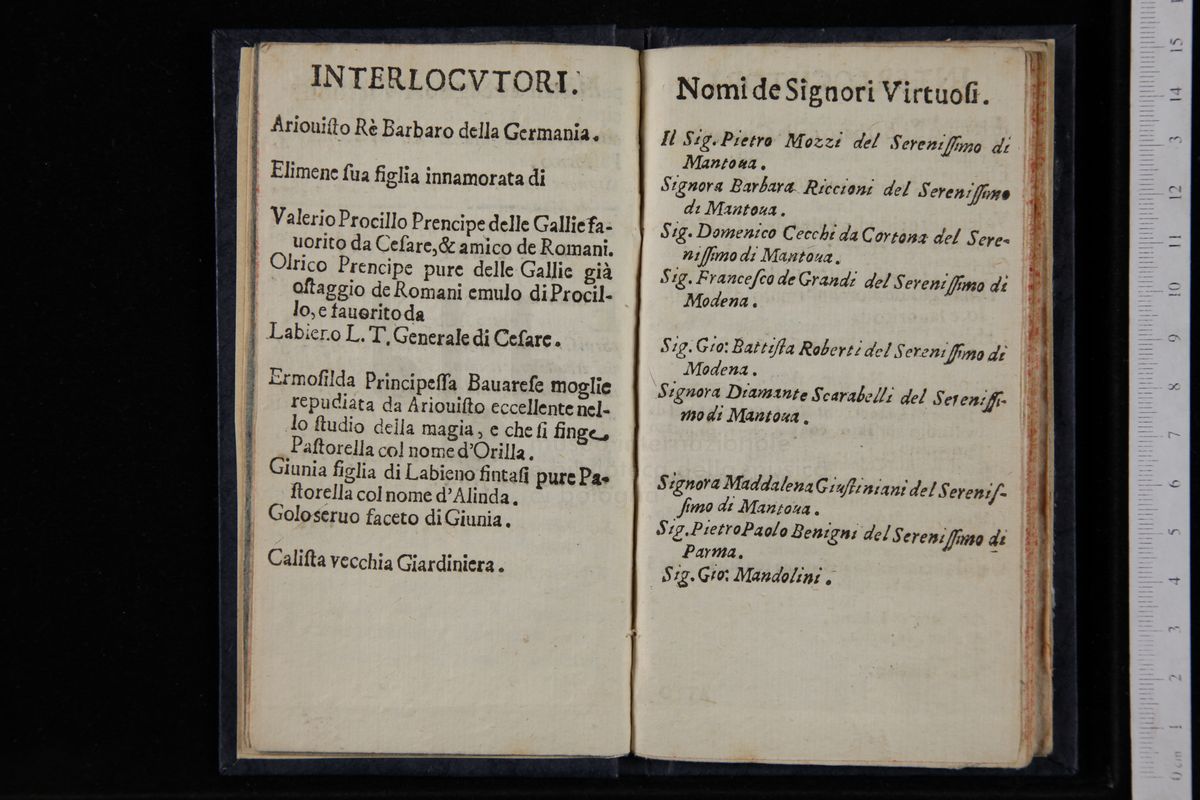 INTERLOCVTORI.
Ariouiſto Rè Barbaro della Germania.
Elimene ſua figlia innamorata di
Valerio Procillo Prencipe delle Gallie fa-
uorito da Ceſare, & amico de Romani.
Olrico Prencipe pure delle Gallie già
oſtaggio de Romani emulo di Procil-
lo, e fauorito da
Labieno L. T. Generale di Ceſare.
Ermoſilda Principeſſa Bauareſe moglie
repudiata da Ariouiſto eccellente nel-
lo ſtudio della magia, e che ſi finge
Paſtorella col nome d'Orilla.
Giunia figlia di Labieno fintaſi pure Pa-
ſtorella col nome d'Alinda.
Golo seruo faceto di Giunia.
Caliſta vecchia Giardiniera.
Nomi de Signori Virtuoſi.
Il Sig. Pietro Mozzi del Sereniſſimo di
Mantoua.
Signora Barbara Riccioni del Sereniſſimo
di Mantoua.
Sig. Domenico Cecchi da Cortona del Sere-
niſſimo di Mantoua.
Sig. Franceſco de Grandi del Sereniſſimo di
Modena.
Sig. Gio: Battiſta Roberti del Sereniſſimo di
Modena.
Signora Diamante Scarabelli del Sereniſſi-
mo di Mantoua.
Signora Maddalena Giuſtiniani del Sereniſ-
ſimo di Mantoua.
Sig. Pietro Paolo Benigni del Sereniſſimo di
Parma.
Sig. Gio: Mandolini.
0 cm 1 2 3 4 5 6 7 8 9 10 11 12 13 14 15